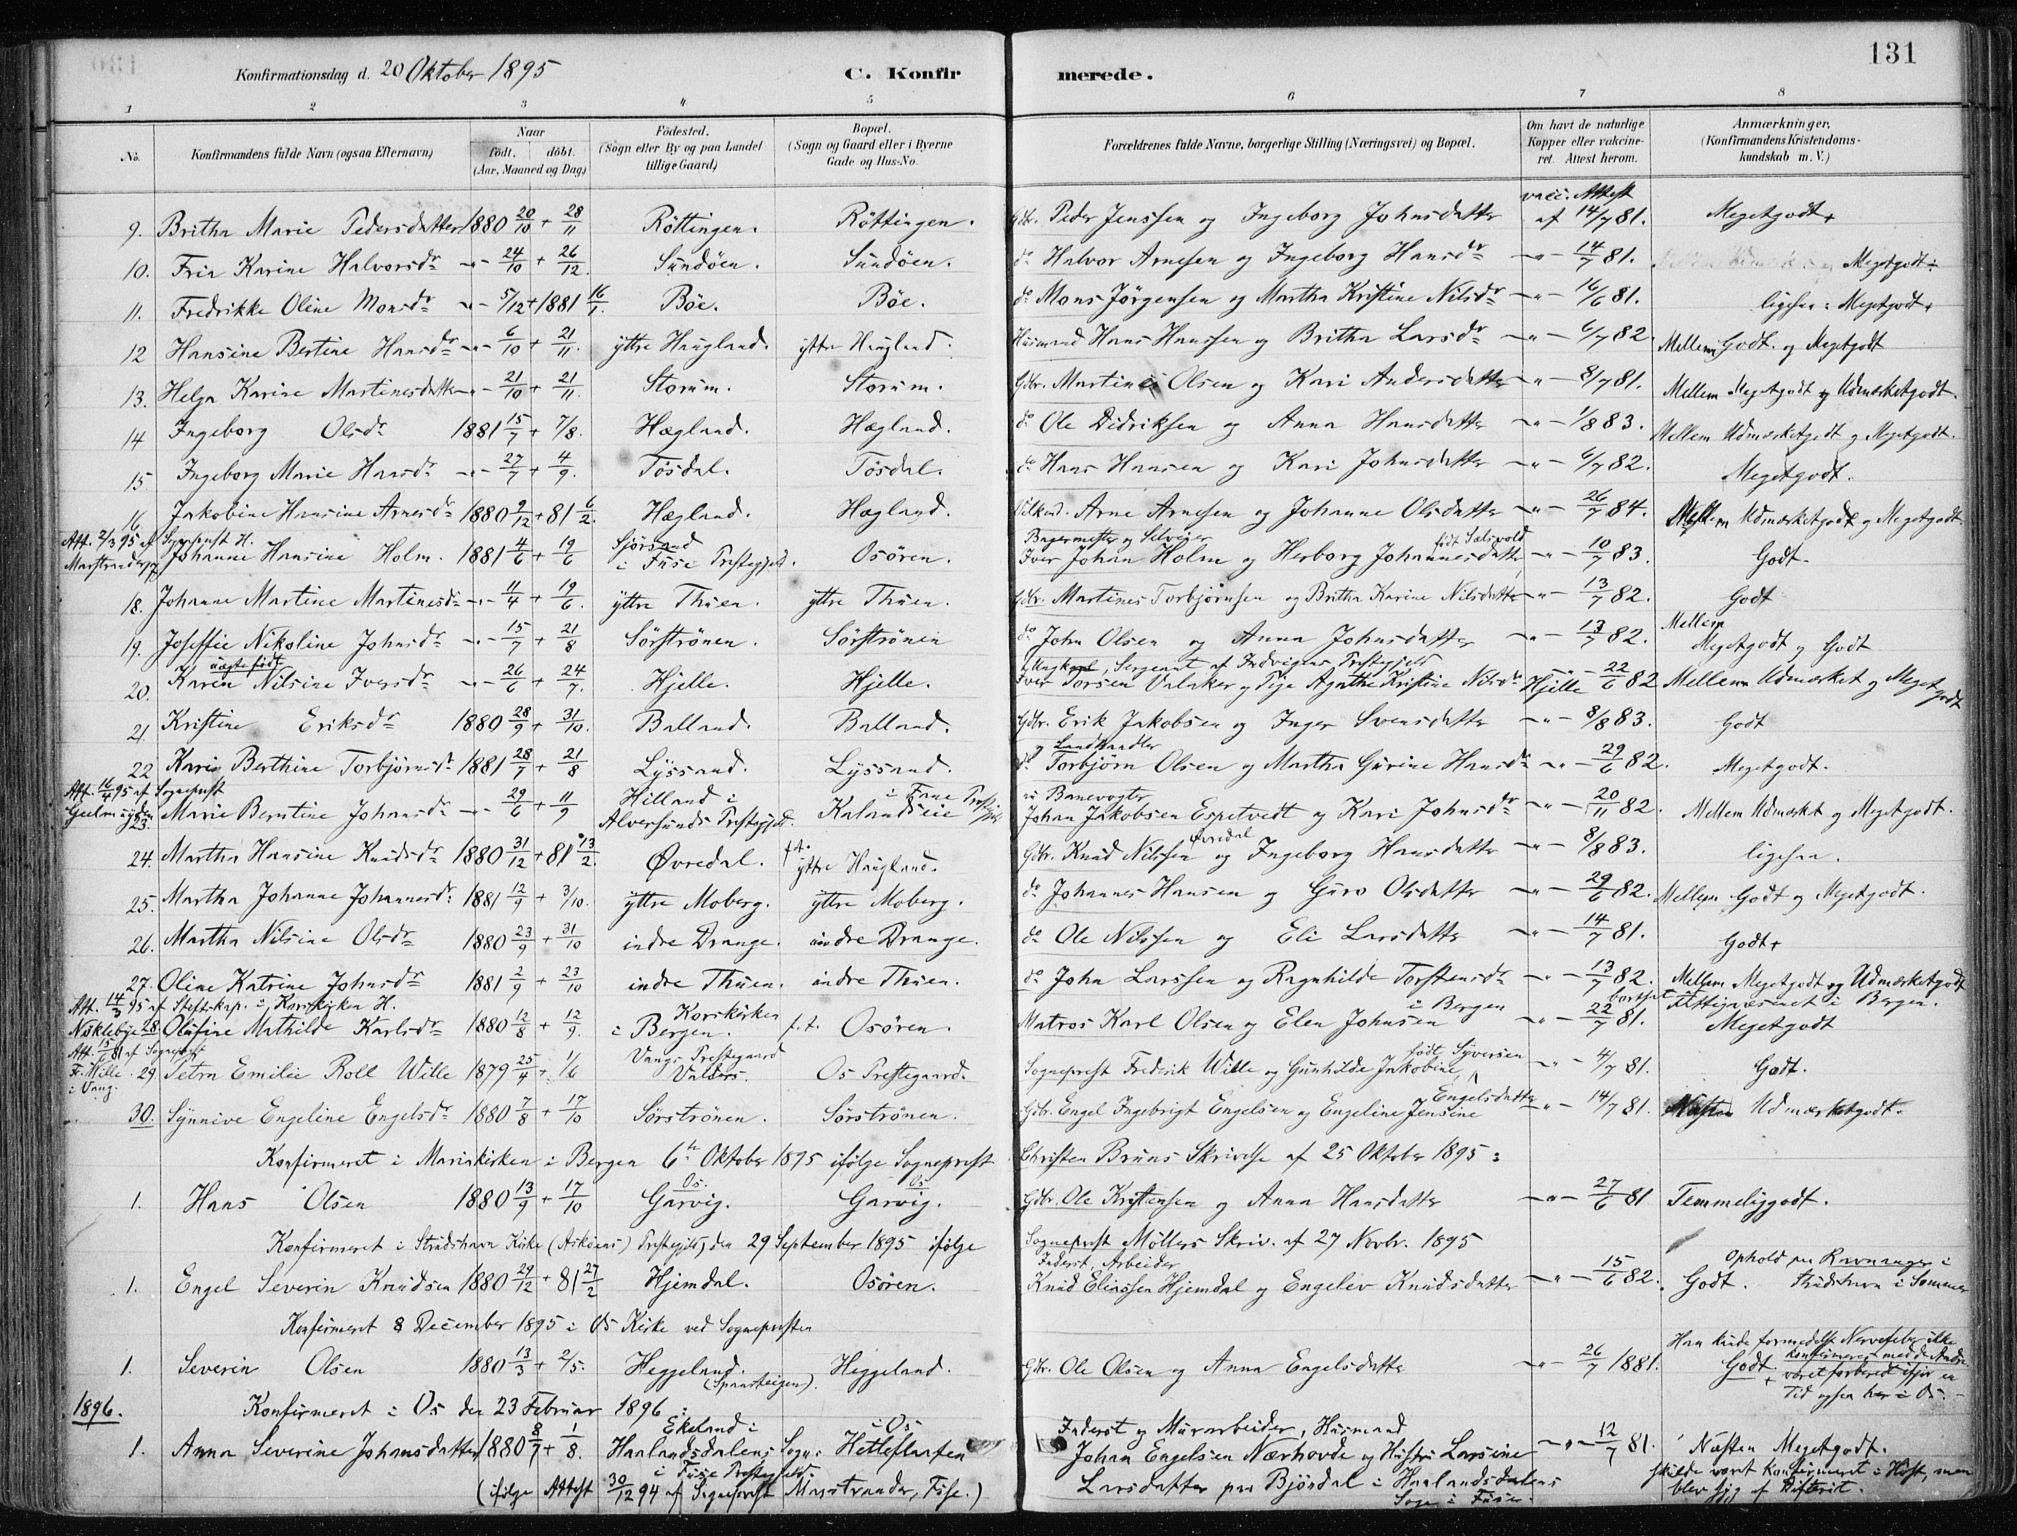 131
Konfirmationsdag d. 20 Oktober 1895 C. Konfirmerede.
1 2 3 4 5 6 7 8
No. Konfirmandens fulde Navn (ogsaa Efternavn) Naar født. døbt. (Aar, Maaned og Dag) Fødested. (Sogn eller By og paa Landet tillige Gaard) Bopæl. (Sogn og Gaard eller i Byerne Gade og Hus-No. Forældrenes fulde Navne, borgerlige Stilling (Næringsvei) og Bopæl. Om havt de naturlige Kopper eller vaccineret. Attest herom. Anmærkninger, (Konfirmandens Kristendomskundskab m. V.)
9. Britha Marie Pedersdatter 1880 20/10 + 28/11 Röttingen. Röttingen. Gbr. Peder Jenssen og Ingeborg Johnsdatter vacc. Attest af 14/7 81. Megetgodt +
10. Fria Karine Halvorsdr -"- 24/10 + 26/12 Sundöen. Sundöen. do Halvor Arnesen og Ingeborg Hansdr -"- 14/7 81. Megetgodt
11. Fredrikke Oline Monsdr -"- 5/12 + 1881 16/1 Böe. Böe. do Mons Jörgensen og Martha Kristine Nilsdr -"- 16/6 81. ligesaa: Megetgodt.
12 Hansine Bertine Hansdr -"- 6/10 + 21/11. yttre Haugland. yttre Haugland. Husmand Hans Hanssen og Britha Larsdr -"- 6/7 82. Mellem Godt. og Megetgodt
13. Helga Karine Martinesdatter -"- 21/10 + 21/11. Storum. Storum. Gbr. Martines Olsen og Kari Andersdatter -"- 8/7 81. Mellem Megetgodt og Udmærketgodt.
14 Ingeborg Olsdr 1881 15/7 + 7/8. Hægland. Hægland. do Ole Didriksen og Anna Hansdatter -"- 1/8 83. Mellem Udmærketgodt og Megetgodt.
15. Ingeborg Marie Hansdr -"- 27/7 + 4/9. Tösdal. Tösdal. do Hans Hansen og Kari Johnsdatter -"- 6/7 82. Megetgodt.
16. Jakobine Hansine Arnesdr 1880 9/12 + 81 6/2. Hægland. Hægland. Arne Arnesen og Johanne Olsdatter -"- 26/7 84. Mellem Udmærketgodt og Megetgodt
Att. 2/3 95 af Sogneprest H. Marstrander 17 Johanne Hansine Holm. 1881 4/6 + 19/6 Sjörsand i Fuse Prestegjeld. Osören. Bagermester og Selveier Iver Johan Holm og Herborg Johannesdatter -"- 10/7 83. Godt.
18. Johanne Martine Martinesdr -"- 11/4 + 19/6. yttre Thuen. yttre Thuen. Gbr. Martines Torbjörnsen og Britha Karine Nilsdatter -"- 13/7 82. Godt
19. Joseffie Nikoline Johnsdr -"- 15/7 + 21/8 Sörströnen. Sörströnen do John Olsen og Anna Johnsdatter -"- 13/7 82. Mellem Megetgodt og Godt
20. uægte født Karen Nilsine Iversdr -"- 26/6 + 24/7. Hjelle. Hjelle. Ungkarl, Sergeant af Indvigens Prestegjeld Iver Torsen Valaker og Pige Agathe Kristine Nilsdr Hjelle -"- 22/6 82 Mellem Udmærket og Megetgodt
21. Kristine Eriksdr 1880 28/9 + 31/10. Balland. Balland. Gbr. Erik Jakobsen og Inger Svensdatter -"- 8/8 83. Godt
22 Kari Berthine Torbjörnsdr 1881 28/7 + 21/8 Lyssand. Lyssand. do og Landhandler Torbjörn Olsen og Martha Gurine Hansdr -"- 29/6 82. Megetgodt.
Att. 16/4 95 af Sogneprest Geelmuyden 23. Marie Berntine Johansdr -"- 29/6 + 11/9 Hilland i Alversunds Prestegjeld. Kalandseie i Fane Prestegjeld Banevogter Johan Jakobsen Espetvedt og Kari Johnsdr -"- 20/11 82. Mellem Udmærket og Megetgodt.
24. Martha Hansine Knudsdr 1880 31/12 + 81 13/2. Øvredal. f.t. yttre Haugland. Gbr. Knud Nilssen Øvredal og Ingeborg Hansdatter -"- 8/8 83. ligesaa.
25. Martha Johanne Johannesdr. 1881 12/9 + 3/10. yttre Moberg. yttre Moberg. do Johannes Hansen og Guro Olsdatter -"- 29/6 82. Mellem Godt og Megetgodt.
26. Martha Nilsine Olsdr 1880 23/9 + 31/10 indre Drange. indre Drange. do Ole Nilssen og Eli Larsdatter -"- 14/7 81. Godt +
27. Oline Katrine Johnsdr 1881 2/9 + 23/10 indre Thuen. indre Thuen. do John Larssen og Ragnhilde Torstensdr -"- 13/7 82. Mellem Megetgodt og Udmærketgodt
Att. 14/3 95 af Stiftskap. i Korskirken H. Naklebye 28. Olufine Mathilde Karlsdr 1880 12/8 + 12/9. Korskirken i Bergen. f.t. Osören. Matros Karl Olsen og Elen Johnsen i Bergen -"- 22/7 81. bortsat Fattigvæsenet i Bergen. Megetgodt
Att. 15/7 81 af Sogneprest Fr. Wille i Vang. 29. Petra Emilie Roll Wille 1879 25/4 + 1/6 Vangs Prestegaard Valders. Os Prestegaard. Sogneprest Fredrik Wille og Gunhilde Jakobine, født Syversen -"- 4/7 81. Godt.
30. Synnive Engeline Engelsdr 1880 7/8 + 17/10 Sörströnen. Sörströnen. Gbr. Engel Ingebrigt Engelsen og Engeline Jensine Engelsdatter -"- 14/7 81. Næsten Udmærketgodt.
Konfirmeret i Mariakirken i Bergen 6te Oktober 1895 ifölge Sogneprest Christen Bruns Skrivelse af 25 Oktober 1895:
1. Hans Olsen 1880 13/9 + 17/10 Os. Garvig. Os Garvig. Gbr. Ole Kristensen og Anna Hansdatter -"- 27/6 81 Temmeliggodt.
Konfirmeret i Strudshavn Kirke (Askøens) Prestegjeld, den 29 September 1895 ifölge Sogneprest Möllers Skriv. af 27 Novbr. 1895
1. Engel Severin Knudsen 1880 29/12 + 81 27/2 Hjemdal. Osören. Inderst, Arbeider Knud Eliassen Hjemdal og Engelev Knudsdatter -"- 15/6 82. Godt. Ophold paa Ravnanger i Strudshavn i Sommer
Konfirmeret 8 December 1895 i Os Kirke ved Sognepresten
1. Severin Olsen 1880 13/3 + 2/5. Heggeland. (Spansteigen). Heggeland. Gbr. Ole Olsen og Anna Engelsdatter -"- 26/7 1881. Godt. Han kunde formedelst Nervefeber ikke konfirmeret med de Andre + været forberedt ifjor en Tid ogsaa her i Os.
1896. Konfirmeret i Os den 23 Februar 1896:
1. Anna Severine Johansdatter 1880 8/7 + 1/8. Ekeland i Haalandsdalens Sogn i Fuse Prestegjeld. i Os Hetleflaaten Inderst og Murarbeider, Husmand Johan Engelsen Nærhovde og Hustru Larsine Larsdatter paa Björdal i Haalandsdalens Sogn i Fuse. -"- 12/7 81. Næsten Megetgodt. skulde været konfirmeret i Höst, men blev syg af Difterit.
(ifölge Attest 30/12 94 af Sogneprest Marstrander, Fuse.)